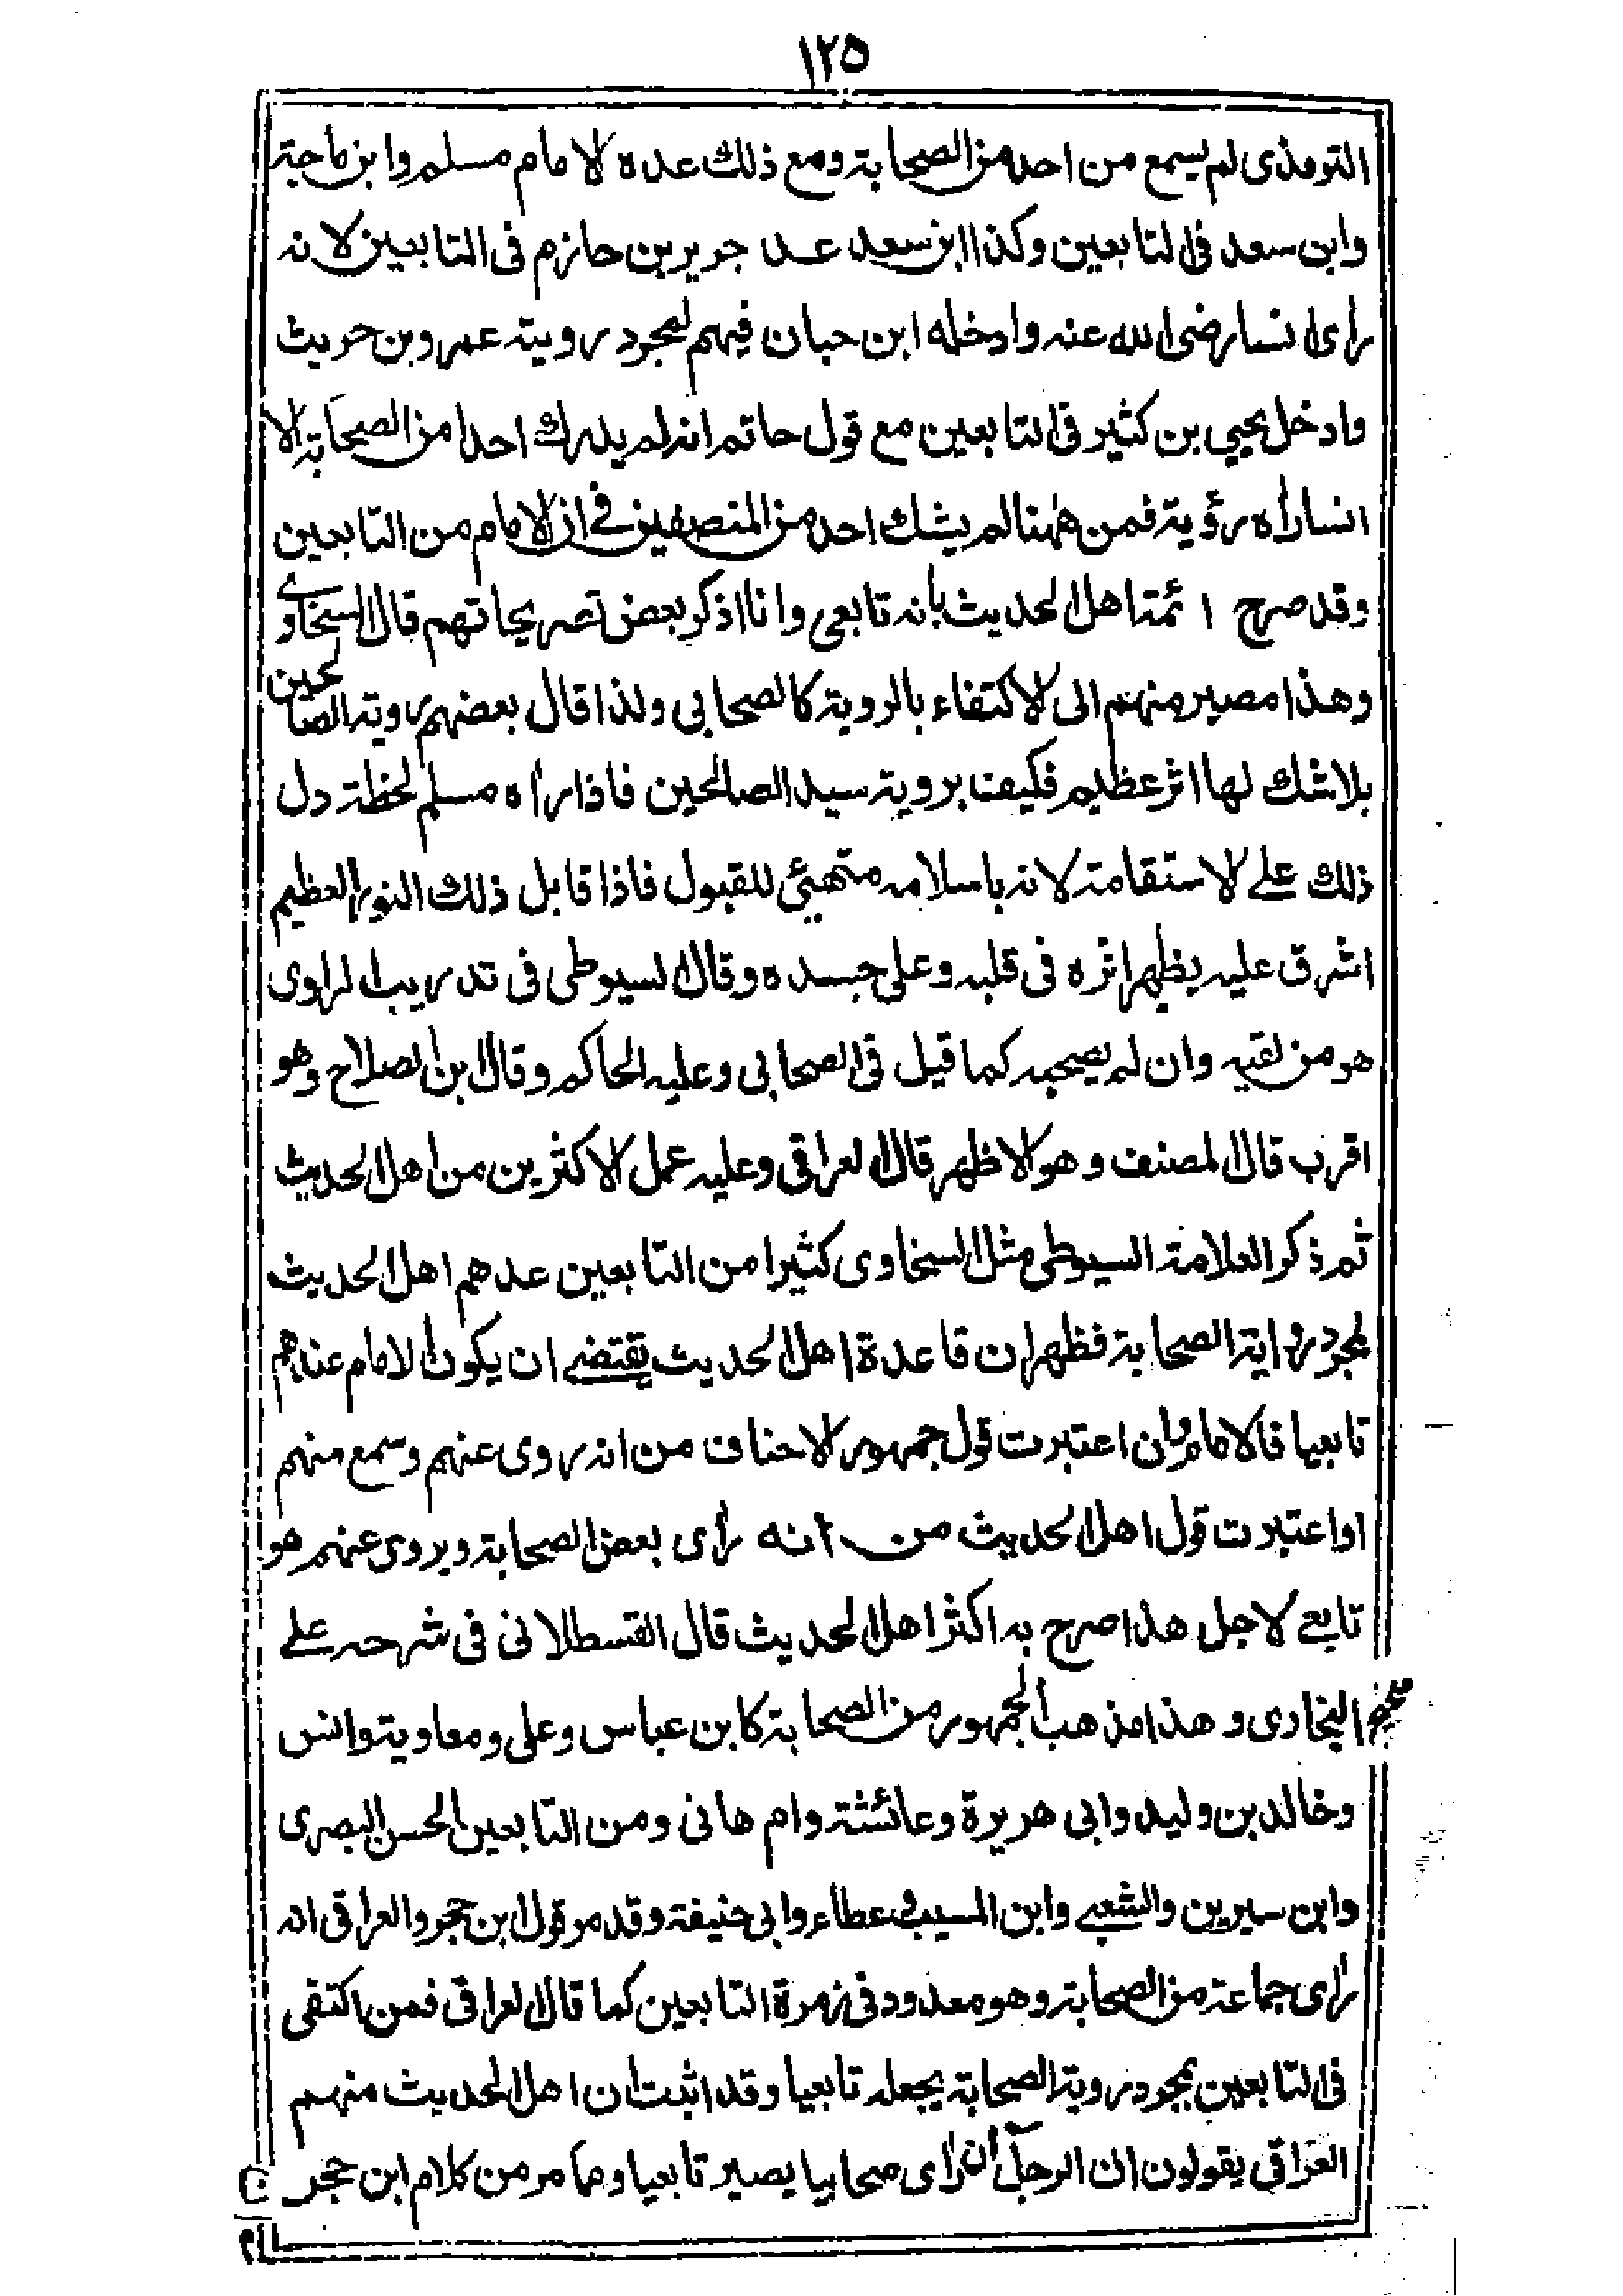 ١٢٥
الترمذى لم يسمع من احد من الصحابة ومع ذلك عده الامام مسلم وابن ماجة
وابن سعد فى التابعين وكذا ابن سعد عد جرير بن حازم فى التابعين لانه
رأى انسا رضى الله عنه وادخله ابن حبان فيهم لمجرد روية عمرو بن حريث
وادخل يحيى بن كثير فى التابعين مع قول حاتم انه لم يدرك احدا من الصحابة الا
انسا رأه رؤية فمن ههنا لم يشك احد من المنصفين فى ان الامام من التابعين
وقد صرح ائمة اهل الحديث بأنه تابعى وانا اذكر بعض تصريحاتهم قال السخاوى
وهذا مصير منهم الى الاكتفاء بالروية كالصحابى ولذا قال بعضهم روية الصالحين
بلا شك لها اثر عظيم فكيف بروية سيد الصالحين فاذا رأه مسلم لحظة دل
ذلك على الاستقامة لانه باسلامه متهيئ للقبول فاذا قابل ذلك النور العظيم
اشرق عليه يظهر اثره فى قلبه وعلى جسده وقال السيوطى فى تدريب الراوى
هو من لقيه وان لم يصحبه كما قيل فى الصحابى وعليه الحاكم وقال ابن الصلاح وهو
اقرب قال المصنف وهو الاظهر قال العراقى وعليه عمل الاكثرين من اهل الحديث
ثم ذكر العلامة السيوطى مثل السخاوى كثيرا من التابعين عدهم اهل الحديث
لمجرد رواية الصحابة فظهر ان قاعدة اهل الحديث يقتضى ان يكون الامام عندهم
تابعيا فالامام وان اعتبرت قول جمهور الاحناف من انه روى عنهم وسمع منهم
او اعتبرت قول اهل الحديث من انه رأى بعض الصحابة ويروى عنهم هو
تابعى لاجل هذا صرح به اكثر اهل الحديث قال القسطلانى فى شرحه على
صحيح البخارى وهذا مذهب الجمهور من الصحابة كابن عباس وعلى ومعاوية وانس
وخالد بن وليد وابى هريرة وعائشة وام هانى ومن التابعين الحسن البصرى
وابن سيرين والشعبى وابن المسيب وعطاء وابى حنيفة وقد مر قول ابن حجر والعراقى انه
رأى جماعة من الصحابة وهو معدود فى زمرة التابعين كما قال العراقى فمن اكتفى
فى التابعين بمجرد روية الصحابة يجعله تابعيا وقد اثبت ان اهل الحديث منهم
العراقى يقولون ان الرجل ان رأى صحابيا يصير تابعيا ومما مر من كلام ابن حجر